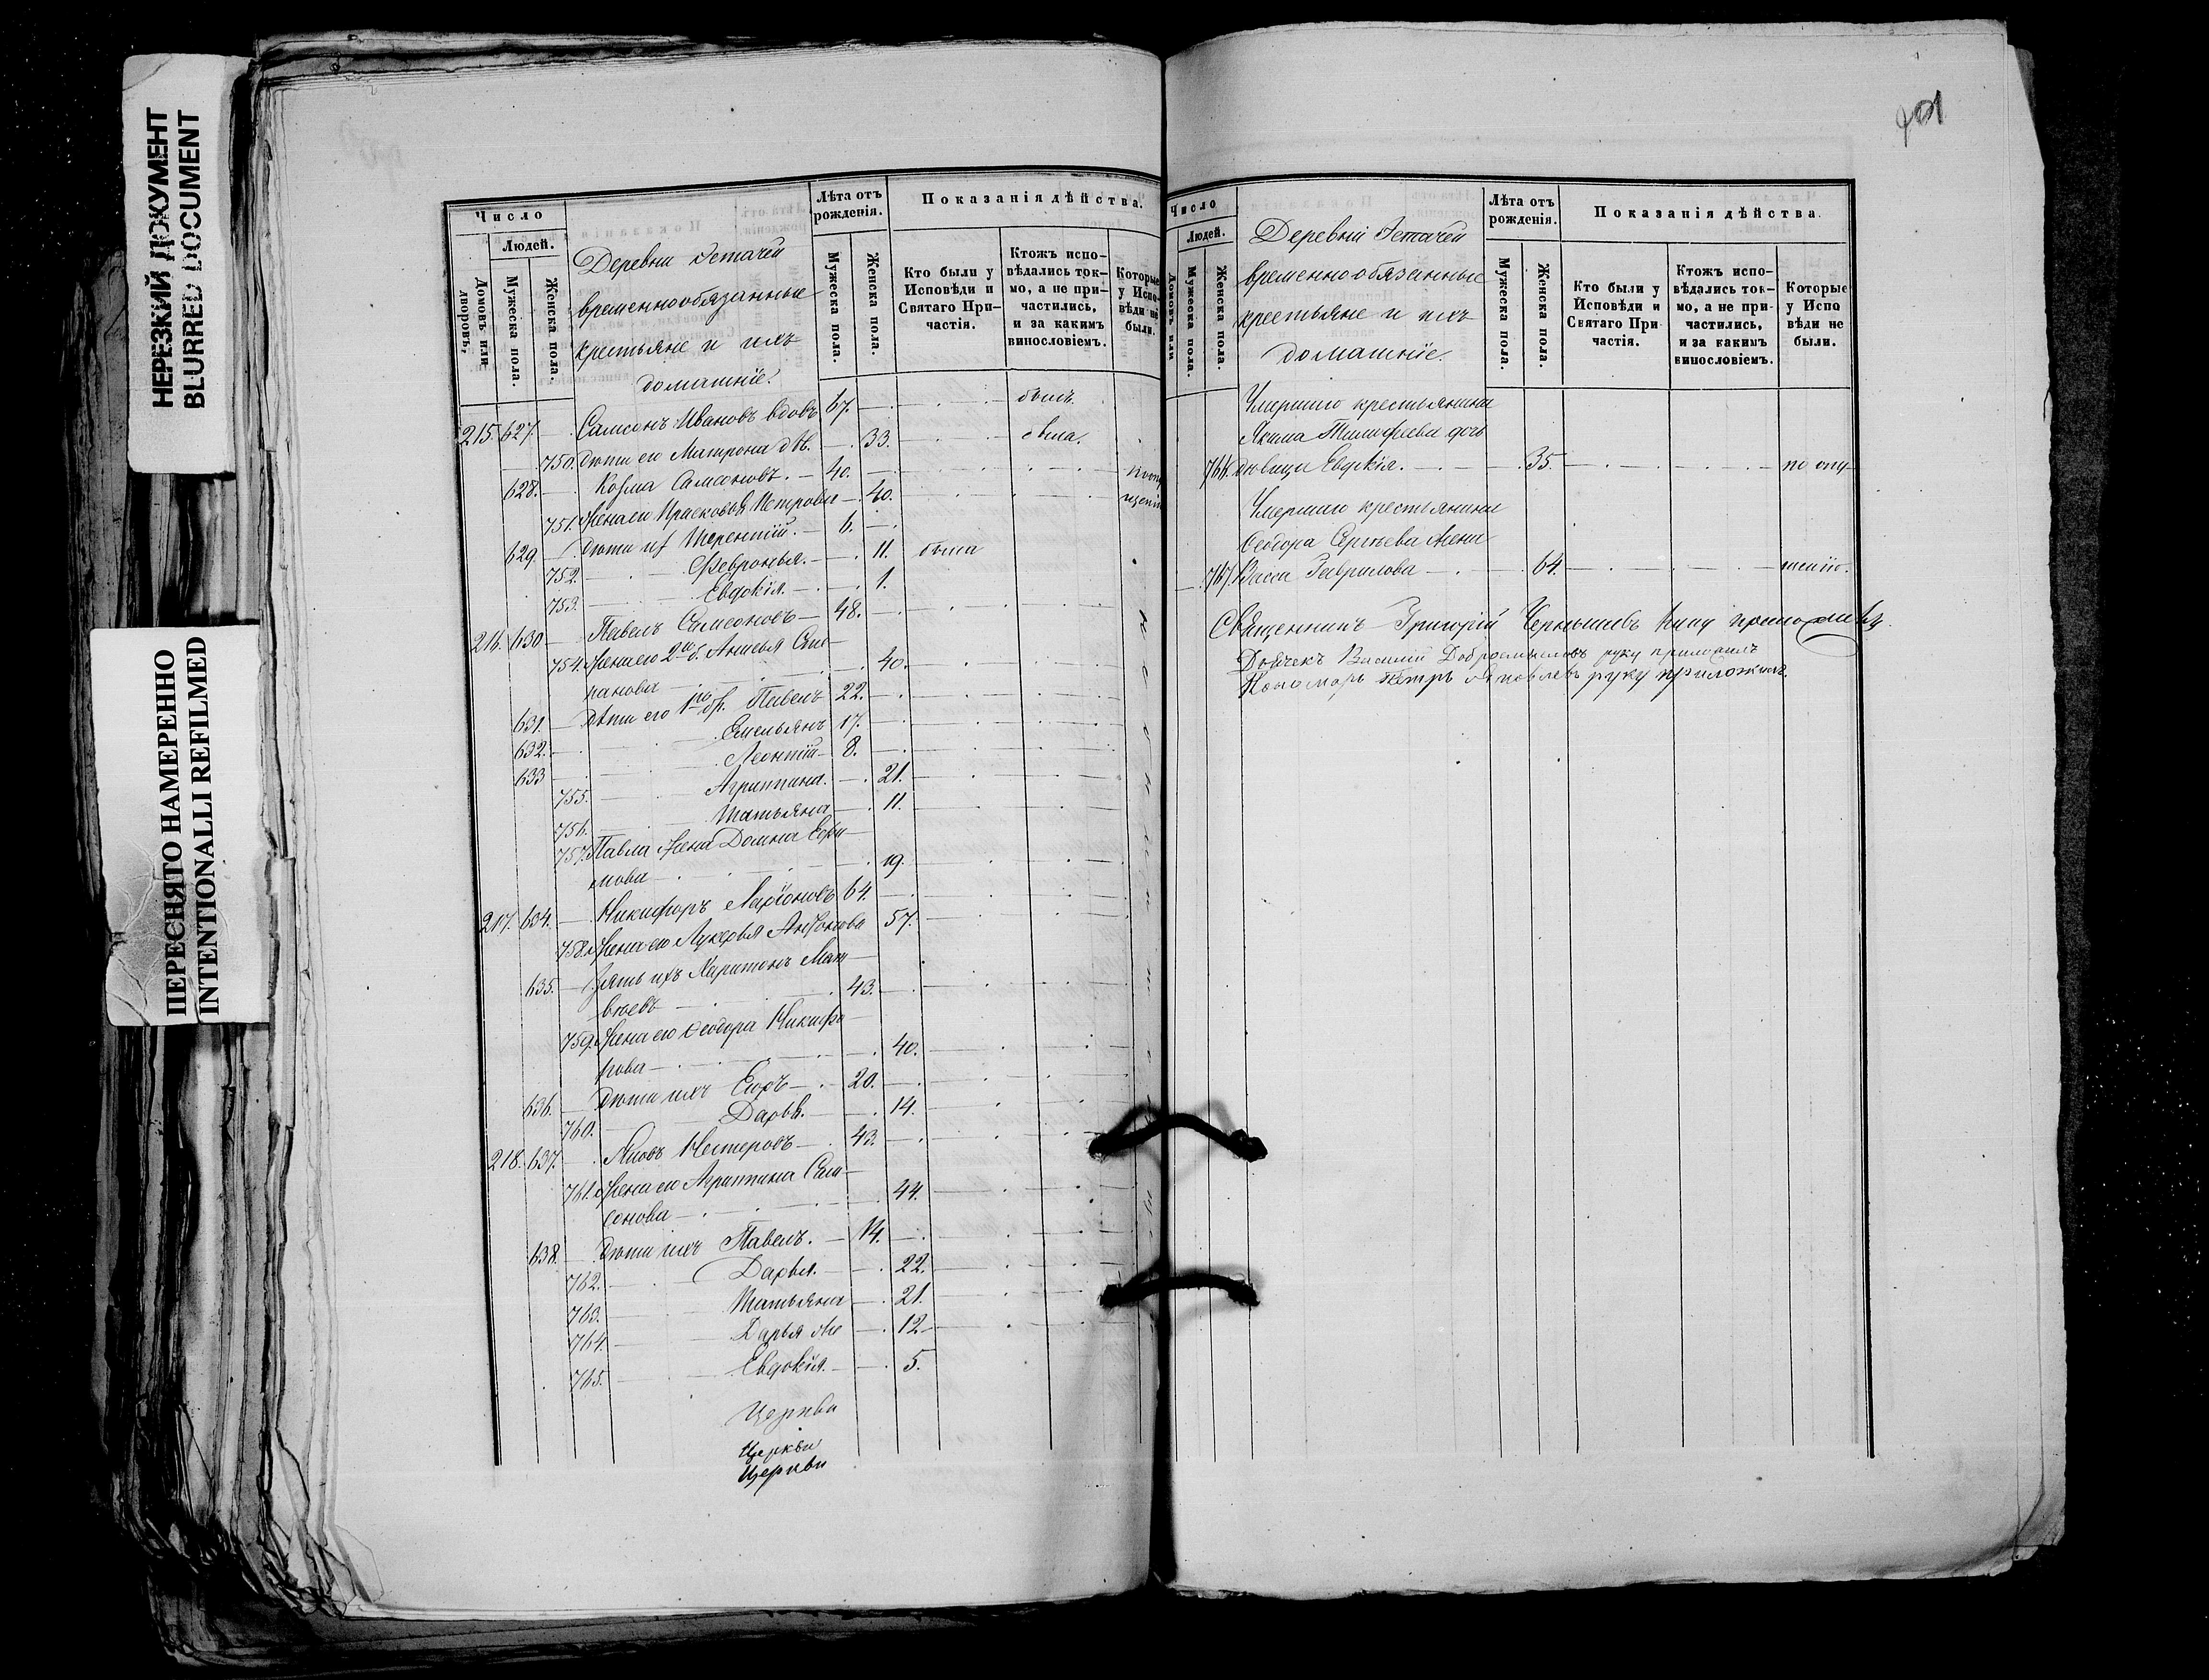 НЕРЕЗКИЙ ДОКУМЕНТ
BLURRED DOCUMENT
ПЕРЕСНЯТО НАМЕРЕННО
INTENTIONALLI REFILMED
Число
Людей.
Домовъ или дворовъ,
Мужеска пола.
Женска пола.
Деревни
временнообязанные
крестьяне и ихъ
домашніе.
Лѣта отъ рожденія.
Мужеска пола.
Женска пола.
Показанія дѣйства.
Кто были у Исповѣди и Святаго Причастія.
Ктожъ исповѣдались токмо, а не причастились, и за какимъ винословіемъ.
Которые у Исповѣди не были.
215. 627. Самсонъ Ивановъ вдовъ 67. былъ
750. Дѣти его Матрона дѣв. 33. была.
628. Козма Самсоновъ. 40.
751. Жена его Прасковья Петрова 40.
629. Дѣти их Терентій. 6.
752. Февронья. 11. была
753. Евдокія. 1.
216. 630 Павелъ Самсоновъ 48.
754. Жена его 2го б. Анисья Сте-
панова 40.
631. Дѣти его 1го бр. Павелъ 22.
632. Емельянъ 17.
633 Леонтій 8.
755. Агриппина. 21.
756. Татьяна 11.
757. Павла жена Домна Ефи-
мова 19.
217. 634. Никифоръ Ларіоновъ 64.
758. Жена его Лукерья Антонова 57.
635. Зять ихъ Харитонъ Мат-
вѣевъ 43.
759. Жена его Ѳеодора Никифо-
рова 40.
636. Дѣти ихъ Егоръ 20.
760. Дарья. 14.
218. 637. Яковъ Нестеровъ 43.
761. Жена его Агриппина Сам-
сонова 44.
638. Дѣти ихъ Павелъ. 14.
762. Дарья. 22.
763. Татьяна 21.
764. Дарья же 12
765. Евдокія. 5.
Церкви
Церкви
Церкви
Число
Людей.
Домовъ или
Мужеска пола.
Женска пола.
Деревни
временнообязанные
крестьяне и ихъ
домашніе.
Лѣта отъ рожденія.
Мужеска пола.
Женска пола.
Показанія дѣйства.
Кто были у Исповѣди и Святаго Причастія.
Ктожъ исповѣдались токмо, а не причастились, и за какимъ винословіемъ.
Которые у Исповѣди не были.
Умершаго крестьянина
Якима Тимофеева дочь
766. дѣвица Евдокія. 35. по опу-
Умершаго крестьянина
Ѳеодора Сергѣева жена
767. Васса Гаврилова 64. щенію.
Священникъ Григорій Чернышевъ руку приложилъ
Дьячекъ Василій Добросмысловъ руку приложилъ
Пономарь Петръ Яковлевъ руку приложилъ.